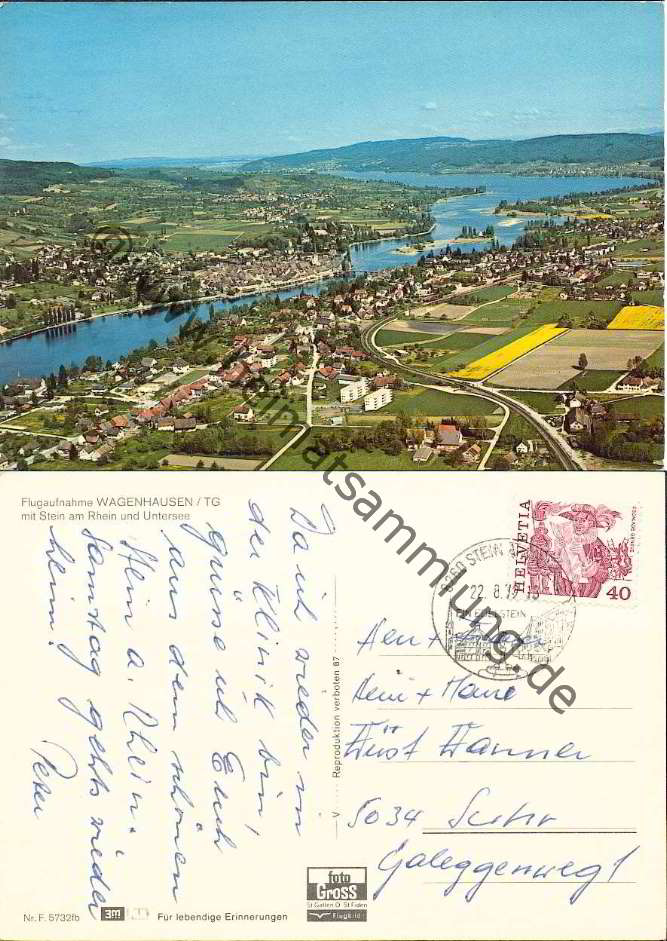 © heimatsammlung.de
Flugaufnahme WAGENHAUSEN / TG
mit Stein am Rhein und Untersee
Da ich wieder in
der Klinik bin,
grüsse ich Euch
aus dem schönen
Stein a. Rhein.
Samstag gehts wieder
heim!
Peter
Nr. F. 5732fb
3m
Für lebendige Erinnerungen
V Reproduktion verboten 87
foto
GROSS
St. Gallen O St. Fiden
Flugbild
HELVETIA
40
8260 STEIN
22. 8. 79-15
EIN EDELSTEIN
Herr + Frau
Heini + Marie
Fürst Wanner
5034 Suhr
Galeggenweg 1